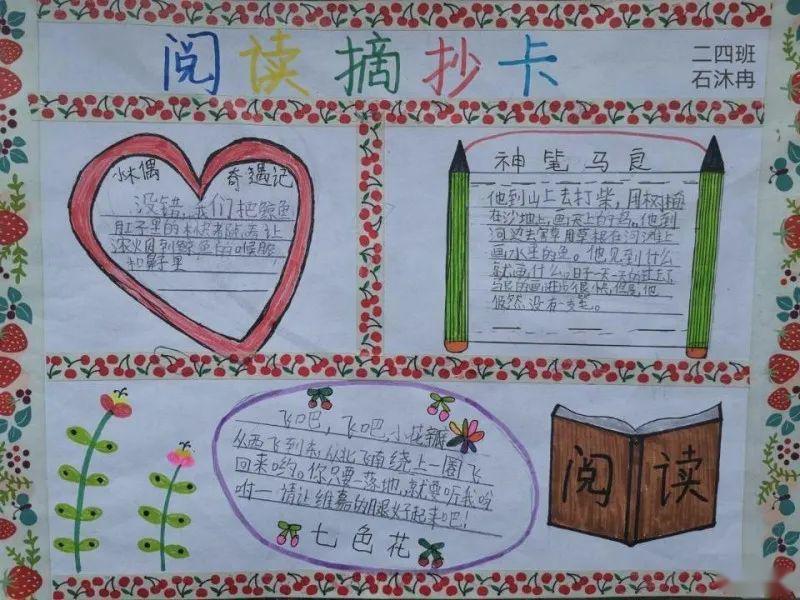 阅读摘抄卡
二四班
石沐冉
小木偶 奇遇记
没错,我们把鲸鱼
肚子里的木
浓烟到鲸鱼的喉咙
和鼻子里
神笔马良
他到山上去打柴,用树枝
在沙地上画天上的鸟。他到
河边去割草用草根在河滩上
画水里的鱼。他见到什么
就画什么。日子一天一天的过去了
马良的画进步很快,但是,他
依然没有一支笔。
飞吧,飞吧,小花瓣
从西飞到东,从北飞南绕上一圈飞
回来哟。你只要一落地,就要听我吩
咐一请让维嘉的腿好起来吧!
七色花
阅读